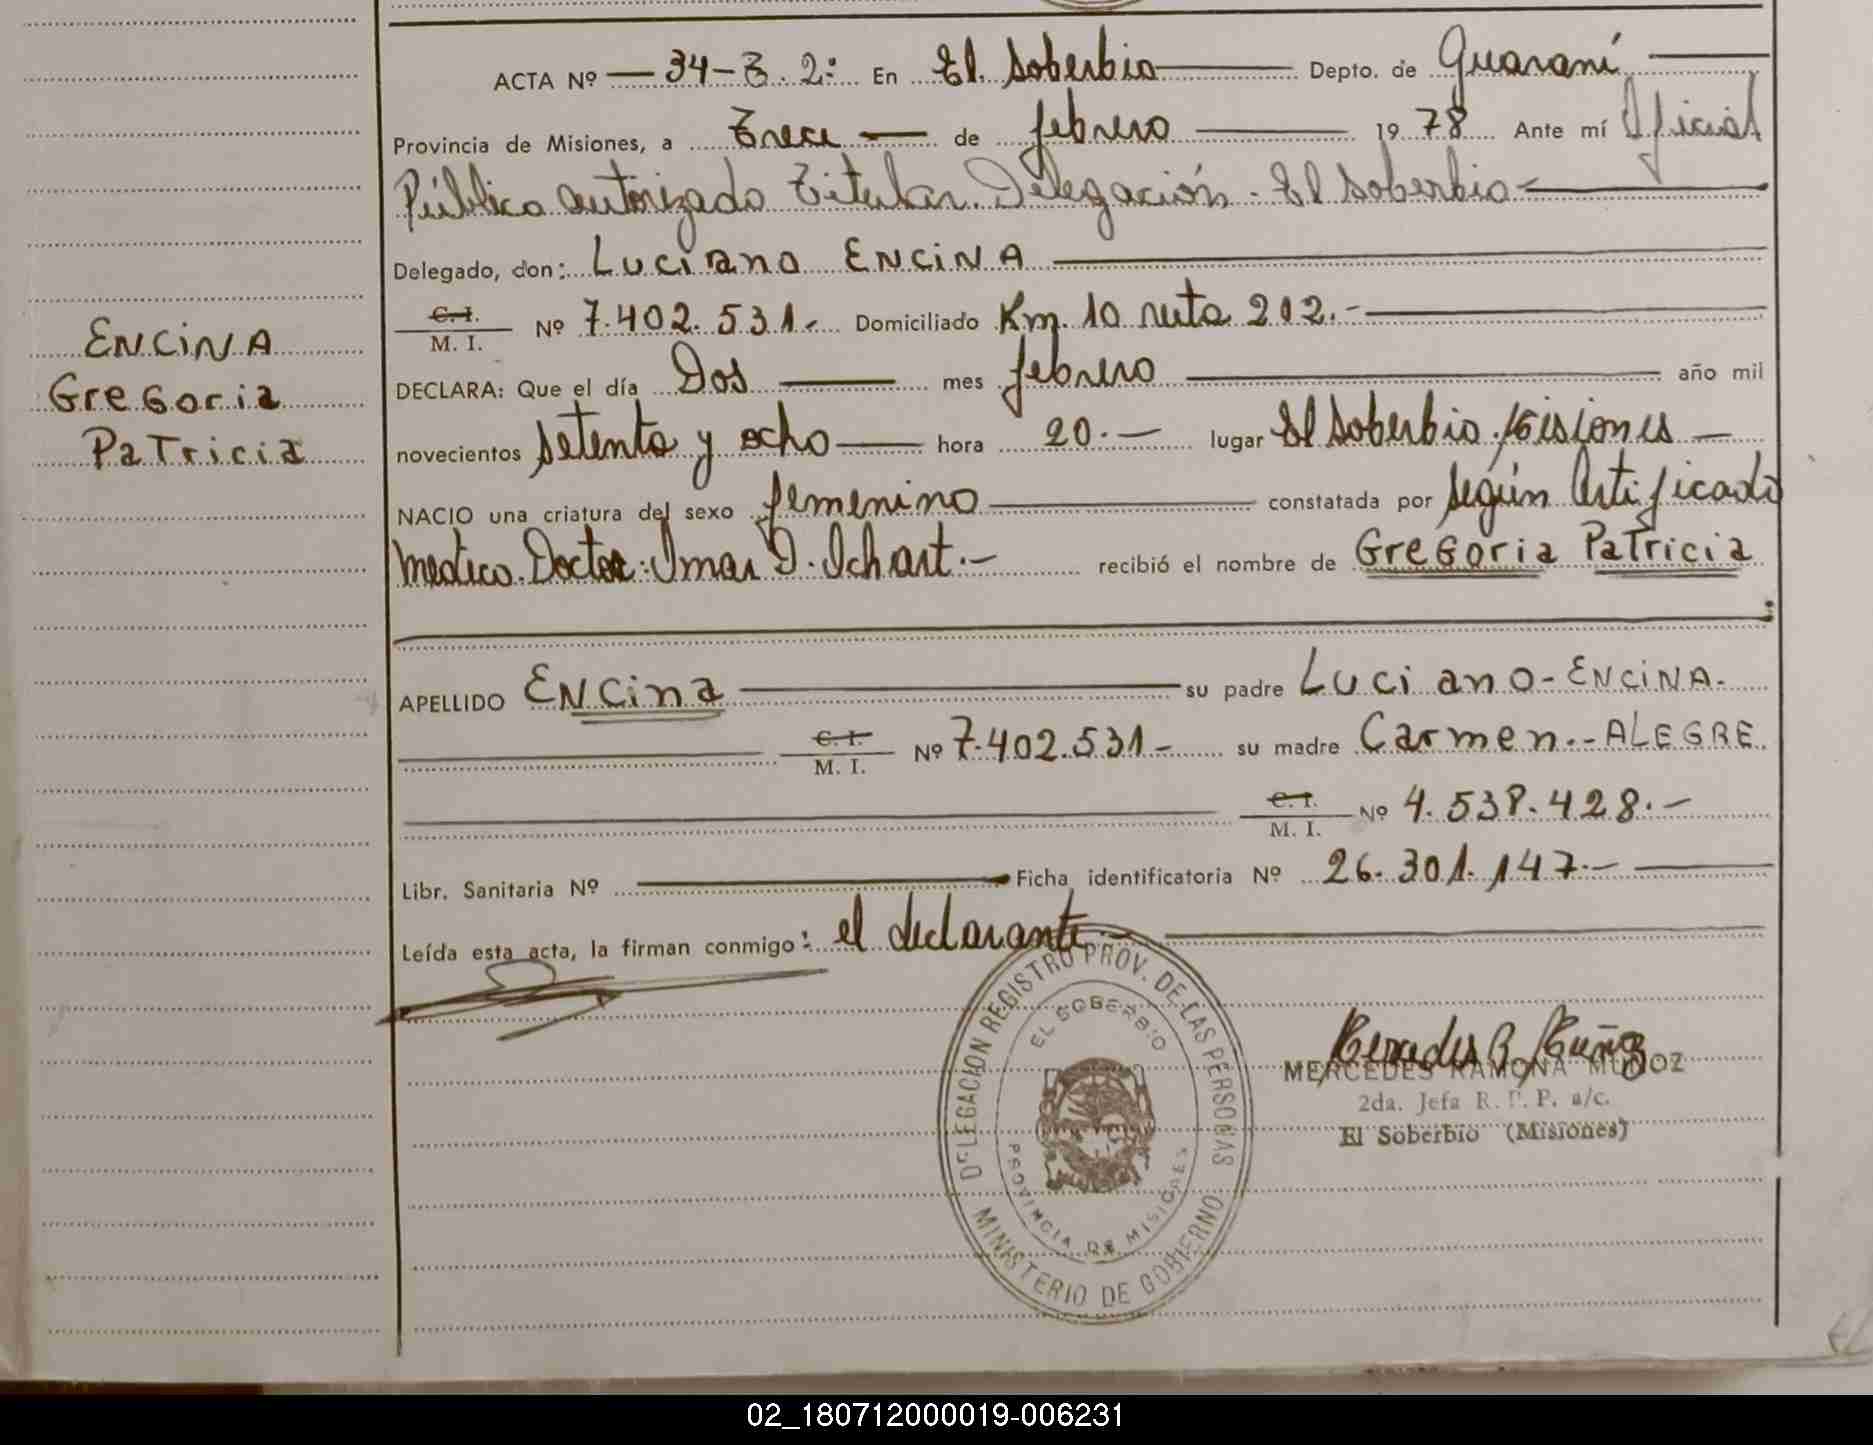 ACTA Nº — 34 - T. 2: En El Soberbio Depto. de Guaraní
Provincia de Misiones, a Trece de febrero 1978 Ante mí Oficial
Público autorizado Titular Delegación - El Soberbio -
Delegado, don: Luciano ENCINA
C. I. Nº 7.402.531.- Domiciliado Km. 10 ruta 212.-
M. I.
DECLARA: Que el día Dos mes febrero año mil
novecientos setenta y ocho hora 20.- lugar El Soberbio. Misiones -
NACIO una criatura del sexo femenino constatada por según Certificado
medico. Doctor: Omar D. Ichart.- recibió el nombre de Gregoria Patricia
ENCINA
Gregoria
Patricia
APELLIDO Encina su padre Luciano - ENCINA.
C. I. Nº 7.402.531 - su madre Carmen.- ALEGRE.
M. I.
C. I. Nº 4.538.428.-
M. I.
Libr. Sanitaria Nº Ficha identificatoria Nº 26.301.147.-
Leída esta acta, la firman conmigo: el declarante.-
DELEGACION REGISTRO PROV. DE LAS PERSONAS
EL SOBERBIO
PROVINCIA DE MISIONES
MINISTERIO DE GOBIERNO
Mercedes R. Muñoz
MERCEDES RAMONA MUÑOZ
2da. Jefa R. P. P. a/c.
El Soberbio (Misiones)
02_180712000019-006231